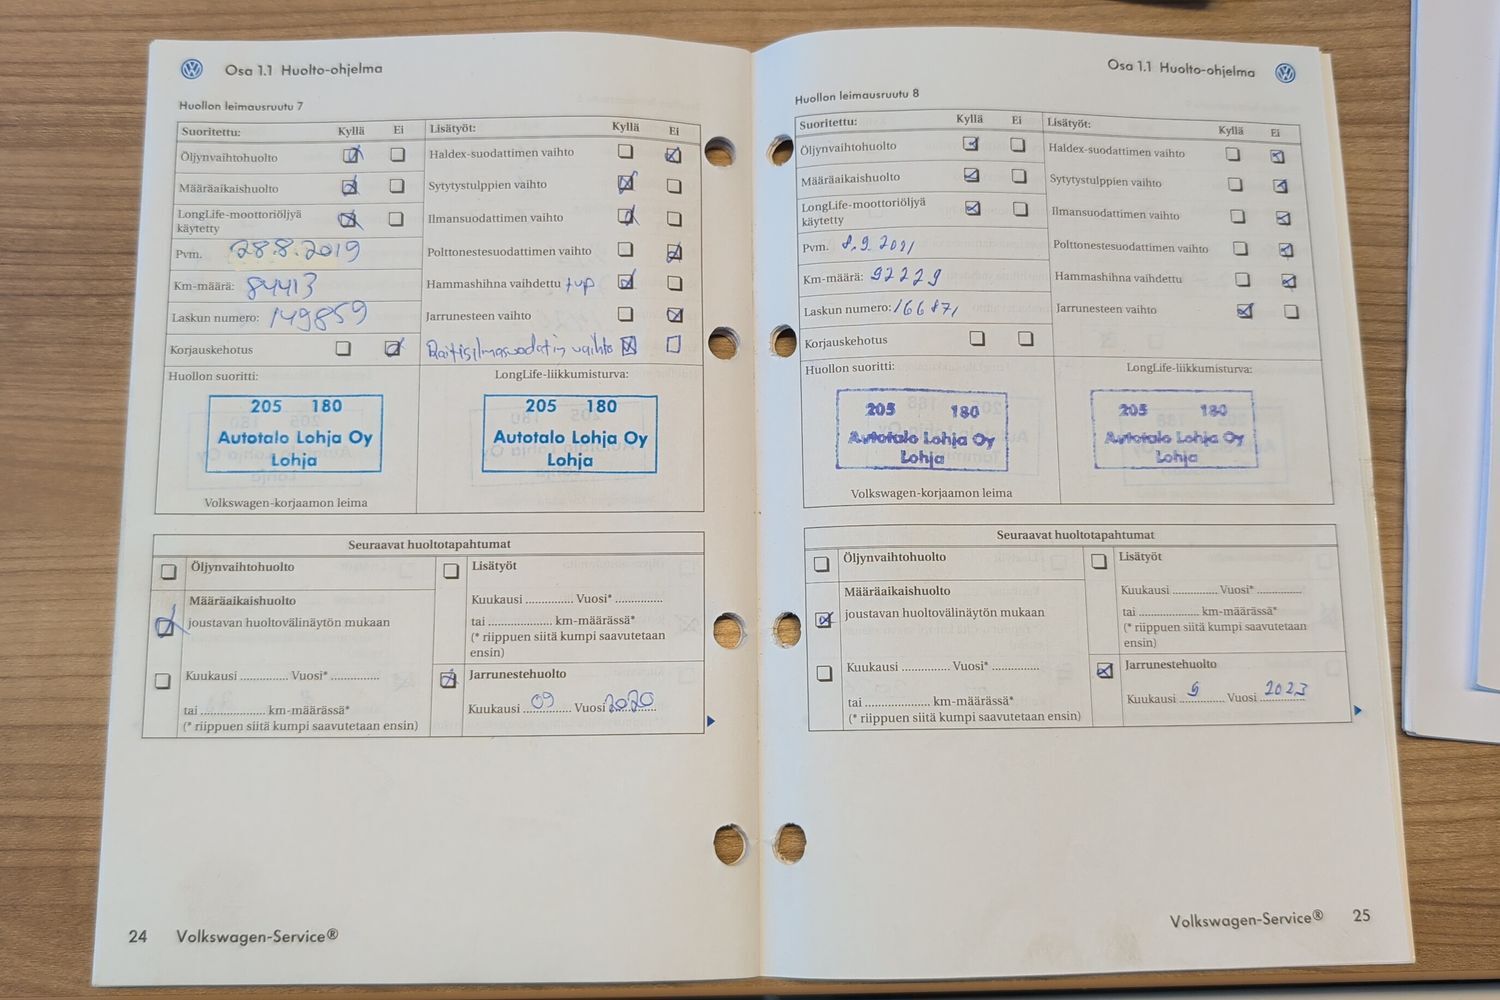 Osa 1.1 Huolto-ohjelma
Huollon leimausruutu 7
Suoritettu: Kyllä Ei Lisätyöt: Kyllä Ei
Öljynvaihtohuolto Haldex-suodattimen vaihto
Määräaikaishuolto Sytytystulppien vaihto
LongLife-moottoriöljyä käytetty Ilmansuodattimen vaihto
Pvm. 28.8.2019 Polttonestesuodattimen vaihto
Km-määrä: 84413 Hammashihna vaihdettu + vp
Laskun numero: 149859 Jarrunesteen vaihto
Korjauskehotus Raitisilmasuodatin vaihto
Huollon suoritti: LongLife-liikkumisturva:
205 180 205 180
Autotalo Lohja Oy Autotalo Lohja Oy
Lohja Lohja
Volkswagen-korjaamon leima
Seuraavat huoltotapahtumat
Öljynvaihtohuolto
Määräaikaishuolto
joustavan huoltovälinäytön mukaan
Kuukausi .............. Vuosi* ..............
tai .................... km-määrässä*
(* riippuen siitä kumpi saavutetaan ensin)
Lisätyöt
Kuukausi .............. Vuosi* ..............
tai .................... km-määrässä*
(* riippuen siitä kumpi saavutetaan
ensin)
Jarrunestehuolto
Kuukausi 09 Vuosi 2020
24 Volkswagen-Service®
Osa 1.1 Huolto-ohjelma
Huollon leimausruutu 8
Suoritettu: Kyllä Ei Lisätyöt: Kyllä Ei
Öljynvaihtohuolto Haldex-suodattimen vaihto
Määräaikaishuolto Sytytystulppien vaihto
LongLife-moottoriöljyä käytetty Ilmansuodattimen vaihto
Pvm. 8.9.2021 Polttonestesuodattimen vaihto
Km-määrä: 92229 Hammashihna vaihdettu
Laskun numero: 166871 Jarrunesteen vaihto
Korjauskehotus
Huollon suoritti: LongLife-liikkumisturva:
205 180 205 180
Autotalo Lohja Oy Autotalo Lohja Oy
Lohja Lohja
Volkswagen-korjaamon leima
Seuraavat huoltotapahtumat
Öljynvaihtohuolto
Määräaikaishuolto
joustavan huoltovälinäytön mukaan
Kuukausi .............. Vuosi* ..............
tai .................... km-määrässä*
(* riippuen siitä kumpi saavutetaan ensin)
Lisätyöt
Kuukausi .............. Vuosi* ..............
tai .................... km-määrässä*
(* riippuen siitä kumpi saavutetaan
ensin)
Jarrunestehuolto
Kuukausi 9 Vuosi 2023
Volkswagen-Service® 25